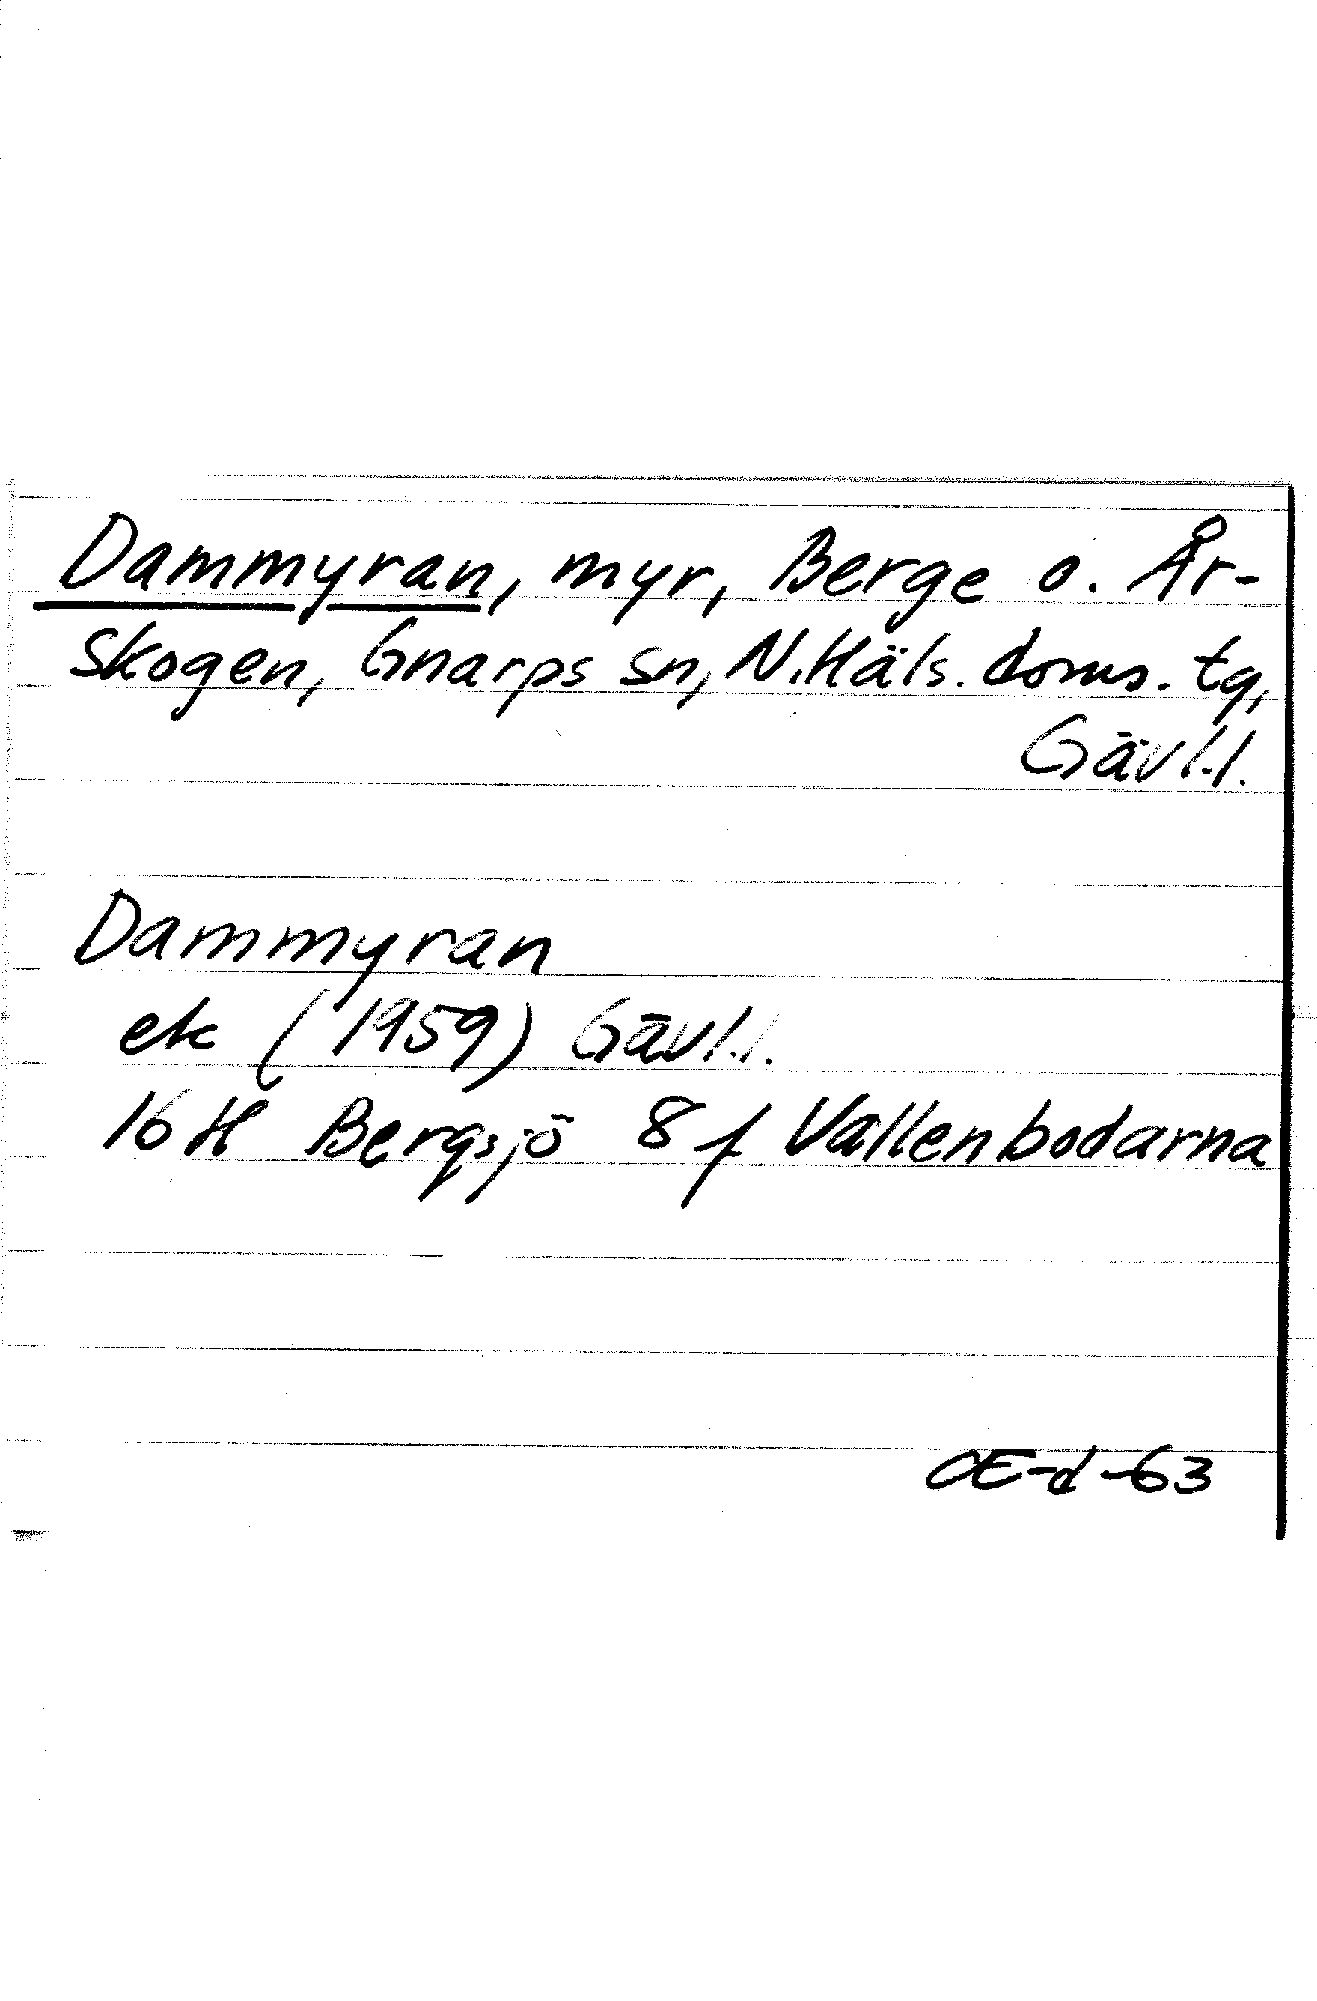 Dammyran, myr, Berge o. År-
skogen, Gnarps sn, N.Häls. doms. tg,
Gävl.l.
Dammyran
ek (1959) Gävl.l.
16 H Bergsjö 8 f Vallenbodarna
OE-d-63